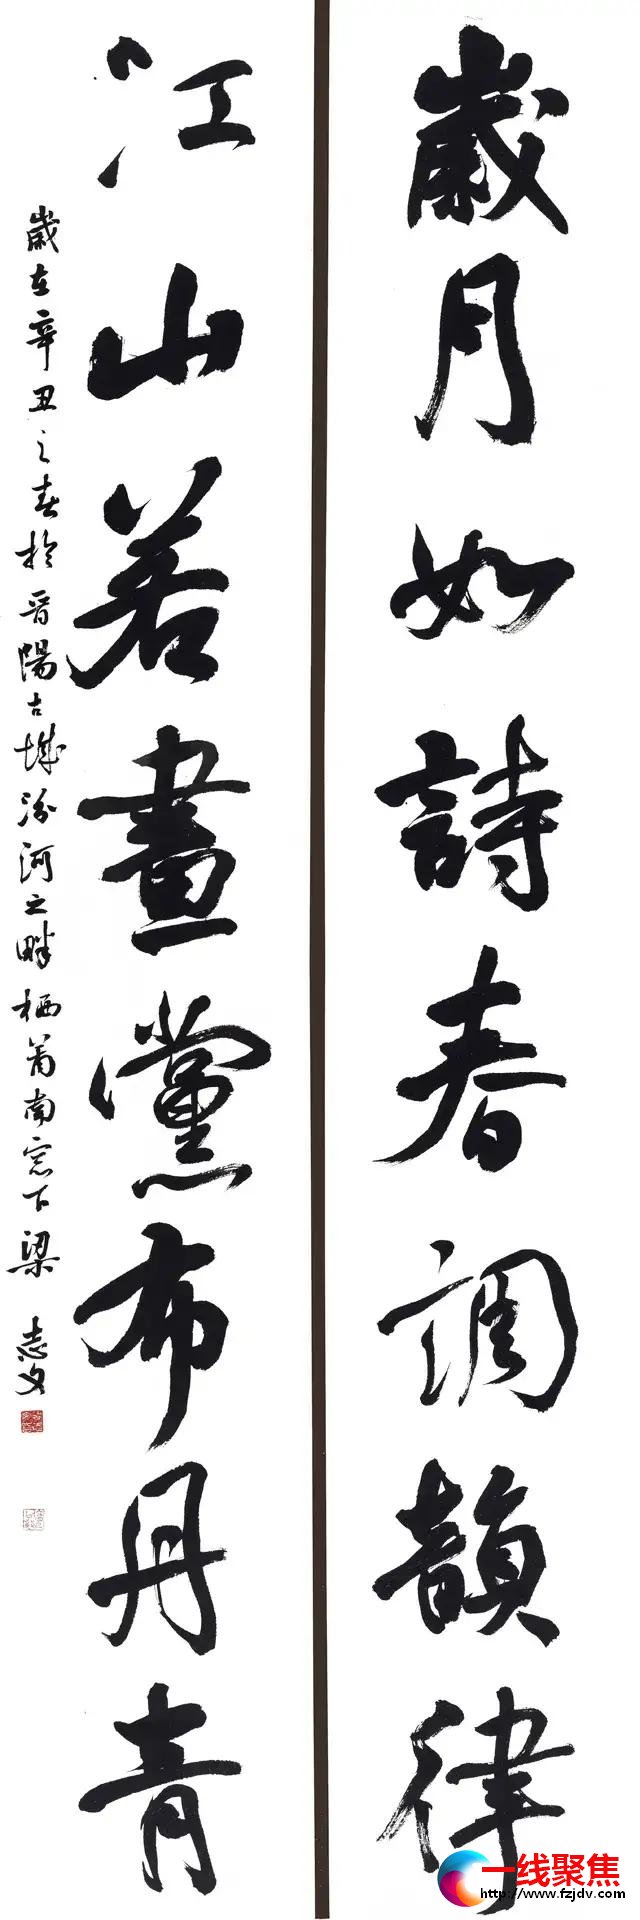 歲月如詩春調韻律
江山若畫黨布丹青
歲在辛丑之春於晉陽古城汾河之畔栖南窓下梁志文
一线聚焦
http://www.fzjdv.com